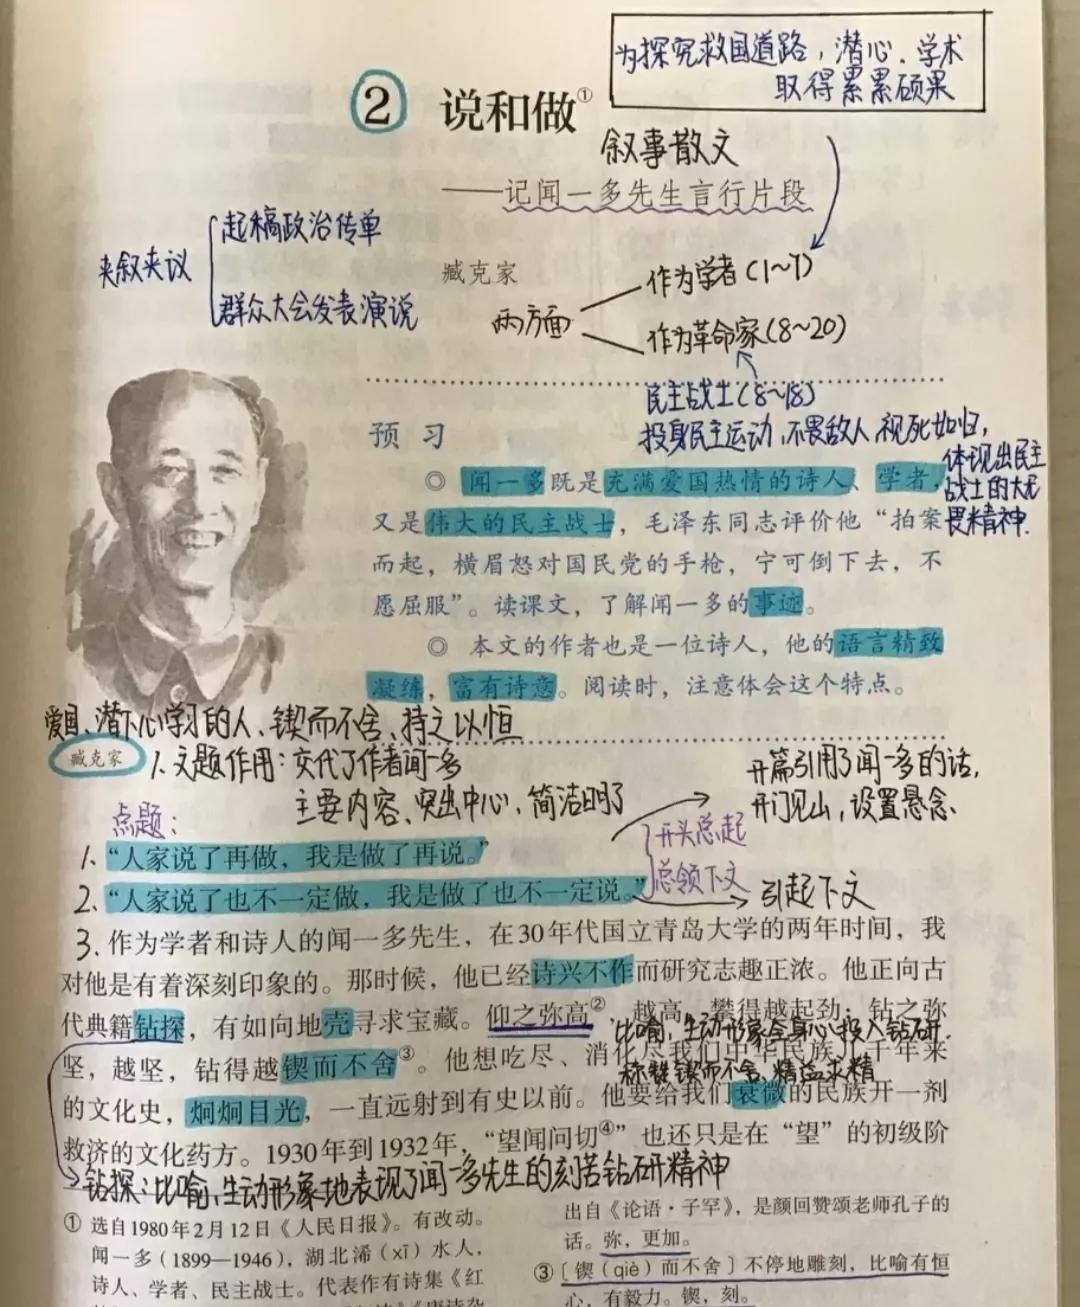 为探究救国道路，潜心学术
取得累累硕果
2 说和做①
叙事散文
——记闻一多先生言行片段
夹叙夹议
起稿政治传单
群众大会发表演说
臧克家
两方面
作为学者(1~7)
作为革命家(8~20)
民主战士(8~18)
投身民主运动，不畏敌人，视死如归，
体现出民主
战士的大无
畏精神.
预习
◎ 闻一多既是充满爱国热情的诗人、学者，
又是伟大的民主战士，毛泽东同志评价他“拍案
而起，横眉怒对国民党的手枪，宁可倒下去，不
愿屈服”。读课文，了解闻一多的事迹。
◎ 本文的作者也是一位诗人，他的语言精致
凝练，富有诗意。阅读时，注意体会这个特点。
爱国、潜下心学习的人、锲而不舍、持之以恒
臧克家
1.文题作用：交代了作者闻一多
主要内容、突出中心、简洁明了
开篇引用了闻一多的话，
开门见山，设置悬念、
点题：
开头总起
总领下文
引起下文
1、“人家说了再做，我是做了再说。”
2、“人家说了也不一定做，我是做了也不一定说。”
3.作为学者和诗人的闻一多先生，在30年代国立青岛大学的两年时间，我
对他是有着深刻印象的。那时候，他已经诗兴不作而研究志趣正浓。他正向古
代典籍钻探，有如向地壳寻求宝藏。仰之弥高②，越高，攀得越起劲；钻之弥
比喻，生动形象全身心投入钻研.
坚，越坚，钻得越锲而不舍③。他想吃尽、消化尽我们中华民族几千年来
称赞锲而不舍、精益求精
的文化史，炯炯目光，一直远射到有史以前。他要给我们衰微的民族开一剂
救济的文化药方。1930年到1932年，“望闻问切④”也还只是在“望”的初级阶
钻探：比喻，生动形象地表现了闻一多先生的刻苦钻研精神
① 选自1980年2月12日《人民日报》。有改动。
闻一多（1899—1946），湖北浠（xī）水人，
诗人、学者、民主战士。代表作有诗集《红
出自《论语·子罕》，是颜回赞颂老师孔子的
话。弥，更加。
③〔锲（qiè）而不舍〕不停地雕刻，比喻有恒
心，有毅力。锲，刻。